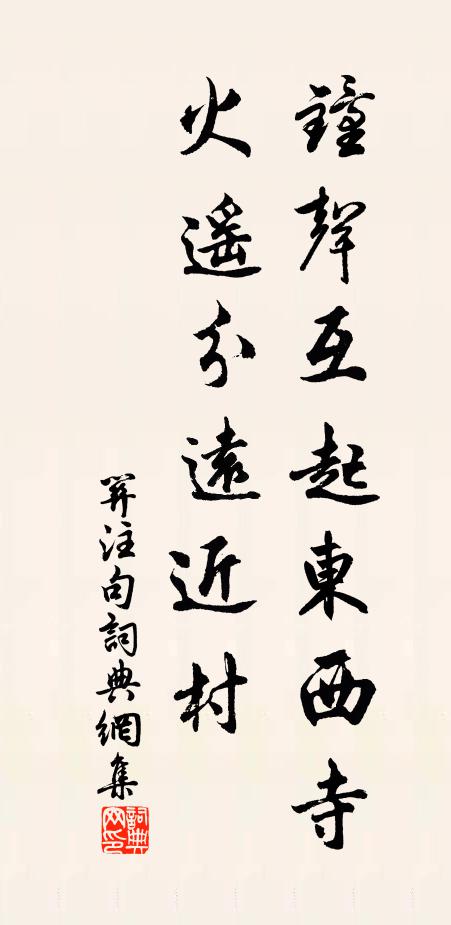 鐘聲互起東西寺
火遥分遠近村
笄注句詞典網集
詞典网印